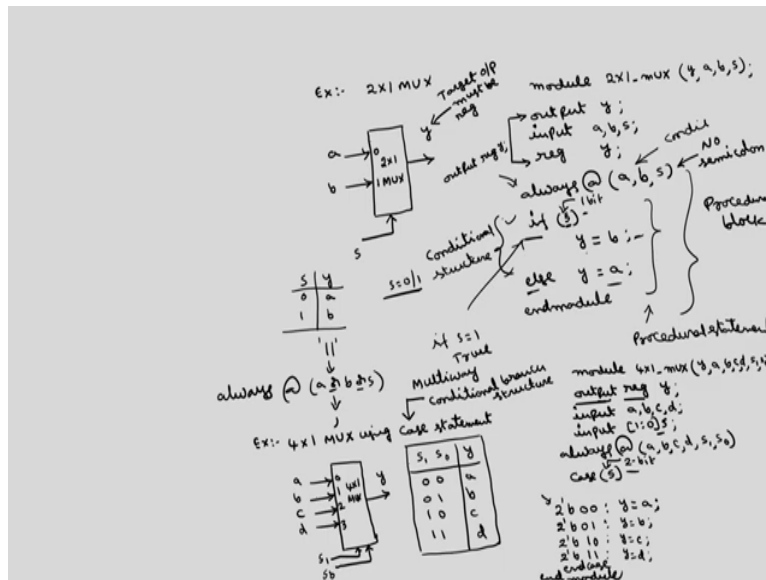 Ex:- 2X1 MUX
Target O/P
must be
reg
y
a
0
b
1
2x1
MUX
s
module 2X1_mux (y, a, b, s);
output y;
input a, b, s;
reg y;
output reg y;
always @ (a, b, s)
NO
semicolon
if (s)
1 bit
y = b;
else y = a;
endmodule
Procedural
block
Procedural statement
Conditional
structure
s=0/1
s y
0 a
1 b
'11'
always @ (a or b or s)
,
if s=1
True
Multiway
conditional branch
structure
Ex:- 4x1 MUX using Case statement
a
b
c
d
0
1
2
3
4x1
MUX
y
s1
s0
s1 s0 y
0 0 a
0 1 b
1 0 c
1 1 d
module 4x1_mux (y, a, b, c, d, s1, s
output reg y;
input a, b, c, d;
input [1:0] s;
always @ (a, b, c, d, s1, s0)
case (s) 2-bit
2'b 00 : y=a;
2'b 01 : y=b;
2'b 10 : y=c;
2'b 11 : y=d;
endcase
endmodule